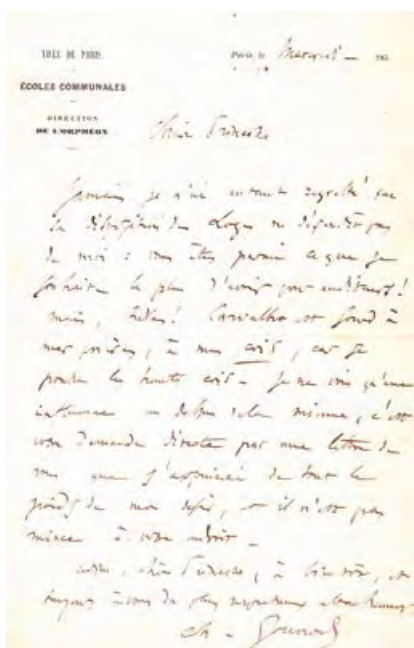 VILLE DE PARIS
Paris, le Mercredi — 185
ÉCOLES COMMUNALES
DIRECTION
DE L'ORPHÉON
Chère Princesse
Jamais je n'ai autant regretté que
la disposition des Loges ne dépendît pas
de moi : vous êtes parmi ce que je
souhaite le plus d'avoir pour auditeurs !
mais, hélas ! Carvalho est sourd à
mes prières, à mes cris, car je
pousse les hauts cris — je ne vois qu'une
influence au dessus de la mienne, c'est
votre demande directe par une lettre de
vous que j'appuierai de tout le
poids de mon désir, et il n'est pas
mince à votre endroit —
chère Princesse, à bientôt, et
toujours à vous du plus respectueux attachement.
Ch. Gounod